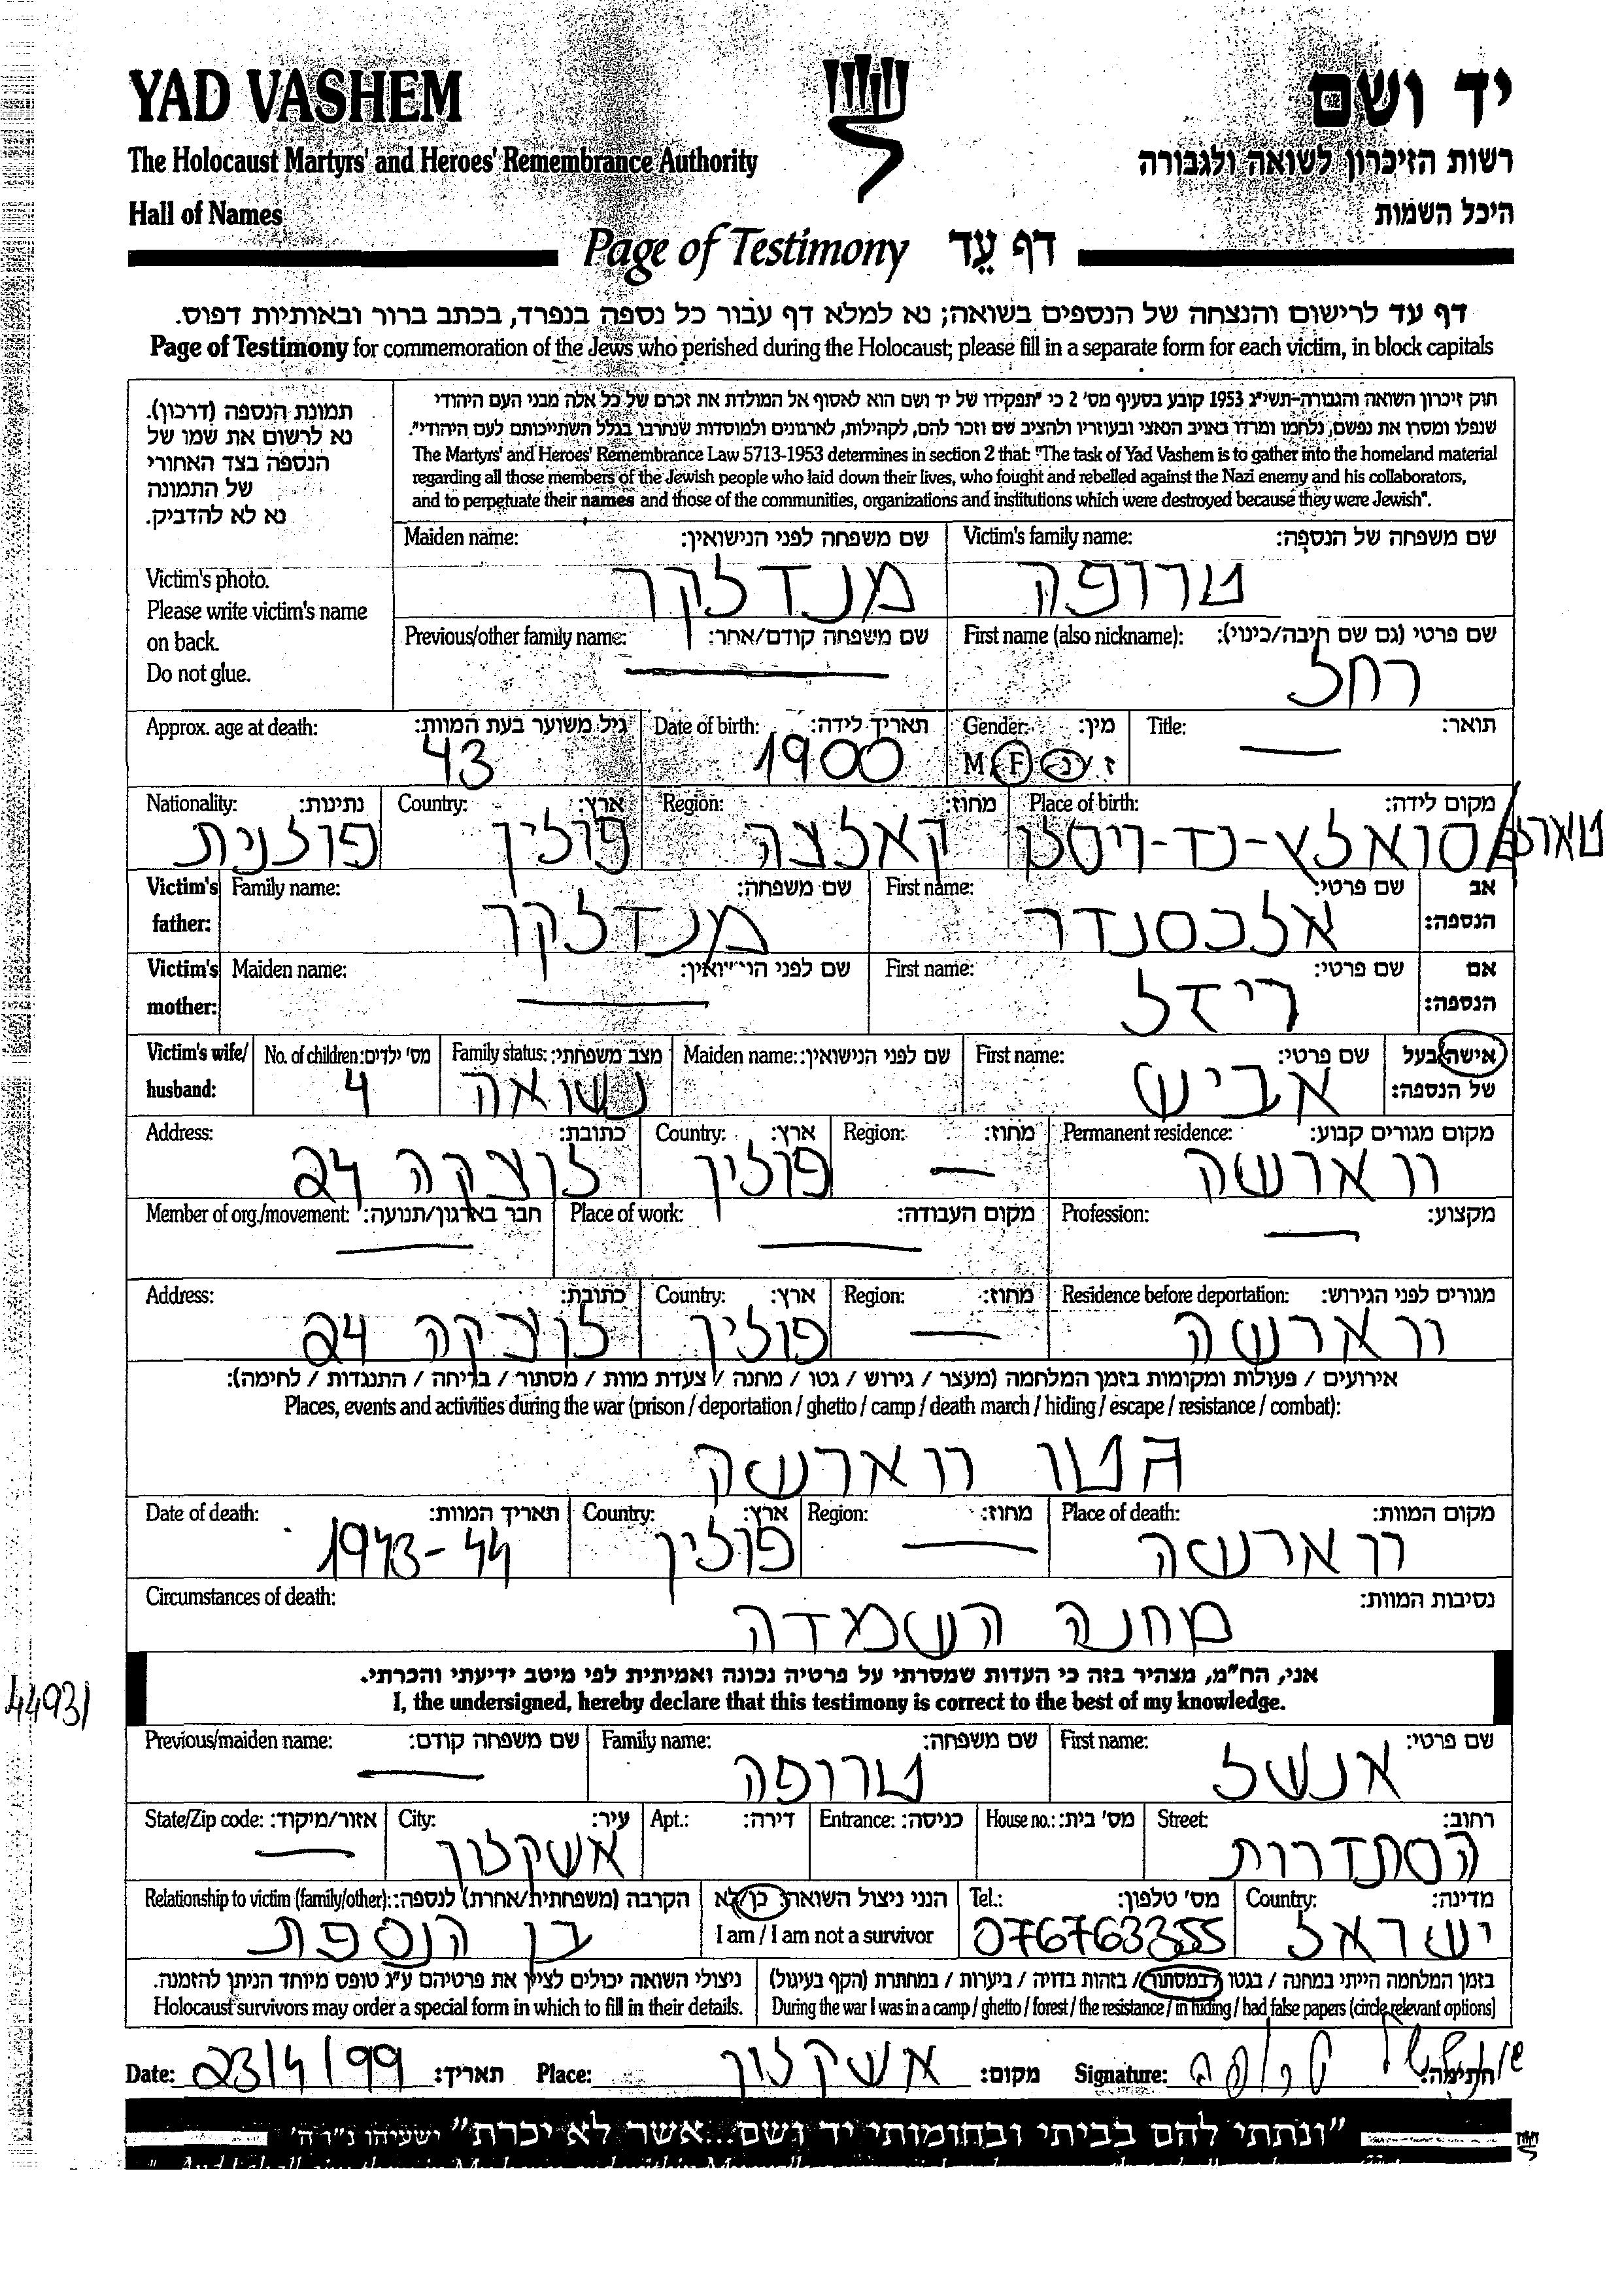 YAD VASHEM
יד ושם
The Holocaust Martyrs' and Heroes' Remembrance Authority
רשות הזיכרון לשואה ולגבורה
Hall of Names
היכל השמות
Page of Testimony דף עֵד
דף עד לרישום והנצחה של הנספים בשואה; נא למלא דף עבור כל נספה בנפרד, בכתב ברור ובאותיות דפוס.
Page of Testimony for commemoration of the Jews who perished during the Holocaust; please fill in a separate form for each victim, in block capitals
תמונת הנספה (דרכון).
נא לרשום את שמו של
הנספה בצד האחורי
של התמונה
נא לא להדביק.
Victim's photo.
Please write victim's name
on back.
Do not glue.
חוק זיכרון השואה והגבורה-תשי"ג 1953 קובע בסעיף מס' 2 כי "תפקידו של יד ושם הוא לאסוף אל המולדת את זכרם של כל אלה מבני העם היהודי
שנפלו ומסרו את נפשם, נלחמו ומרדו באויב הנאצי ובעוזריו ולהציב שם וזכר להם, לקהילות, לארגונים ולמוסדות שנחרבו בגלל השתייכותם לעם היהודי".
The Martyrs' and Heroes' Remembrance Law 5713-1953 determines in section 2 that: "The task of Yad Vashem is to gather into the homeland material
regarding all those members of the Jewish people who laid down their lives, who fought and rebelled against the Nazi enemy and his collaborators,
and to perpetuate their names and those of the communities, organizations and institutions which were destroyed because they were Jewish".
Victim's family name: שם משפחה של הנספה:
טרופה
Maiden name: שם משפחה לפני הנישואין:
מנדלקר
First name (also nickname): שם פרטי (גם שם חיבה/כינוי):
רחל
Previous/other family name: שם משפחה קודם/אחר:
Title: תואר:
Gender: מין:
M F נ ז
Date of birth: תאריך לידה:
1900
Approx. age at death: גיל משוער בעת המוות:
43
Place of birth: מקום לידה:
Region: מחוז:
קאלצה
Country: ארץ:
פולין
Nationality: נתינות:
פולנית
Victim's father: אב הנספה:
First name: שם פרטי:
אלכסנדר
Family name: שם משפחה:
מנדלקר
Victim's mother: אם הנספה:
First name: שם פרטי:
רידל
Maiden name:
Victim's wife/ husband: אישה/בעל של הנספה:
First name: שם פרטי:
אביש
Maiden name: שם לפני הנישואין:
Family status: מצב משפחתי:
נשואה
No. of children: מס' ילדים:
4
Permanent residence: מקום מגורים קבוע:
ווארשה
Region: מחוז:
Country: ארץ:
פולין
Address: כתובת:
לוצקה 24
Profession: מקצוע:
Place of work: מקום העבודה:
Member of org./movement: חבר בארגון/תנועה:
Residence before deportation: מגורים לפני הגירוש:
ווארשה
Region: מחוז:
Country: ארץ:
פולין
Address: כתובת:
לוצקה 24
אירועים / פעולות ומקומות בזמן המלחמה (מעצר / גירוש / גטו / מחנה / צעדת מוות / מסתור / בריחה / התנגדות / לחימה):
Places, events and activities during the war (prison / deportation / ghetto / camp / death march / hiding / escape / resistance / combat):
גטו ווארשה
Place of death: מקום המוות:
ווארשה
Region: מחוז:
Country: ארץ:
פולין
Date of death: תאריך המוות:
1943-44
Circumstances of death: נסיבות המוות:
מחנה השמדה
אני, הח"מ, מצהיר בזה כי העדות שמסרתי על פרטיה נכונה ואמיתית לפי מיטב ידיעתי והכרתי.
I, the undersigned, hereby declare that this testimony is correct to the best of my knowledge.
44931
First name: שם פרטי:
אנשל
Family name: שם משפחה:
טרופה
Previous/maiden name: שם משפחה קודם:
Street: רחוב:
הסתדרות
House no.: מס' בית:
Entrance: כניסה:
Apt.: דירה:
City: עיר:
אשקלון
State/Zip code: אזור/מיקוד:
Country: מדינה:
ישראל
Tel.: מס' טלפון:
076763355
הנני ניצול השואה: כן/לא
I am / I am not a survivor
Relationship to victim (family/other): הקרבה (משפחתית/אחרת) לנספה:
בן הנספת
בזמן המלחמה הייתי במחנה / בגטו / במסתור / בזהות בדויה / ביערות / במחתרת (הקף בעיגול)
During the war I was in a camp / ghetto / forest / the resistance / in hiding / had false papers (circle relevant options)
ניצולי השואה יכולים לציין את פרטיהם ע"ג טופס מיוחד הניתן להזמנה.
Holocaust survivors may order a special form in which to fill in their details.
Date: 23/4/99 תאריך:
Place: אשקלון מקום:
Signature: חתימה:
"ונתתי להם בביתי ובחומותי יד ושם...אשר לא יכרת" ישעיהו נ"ו ה'